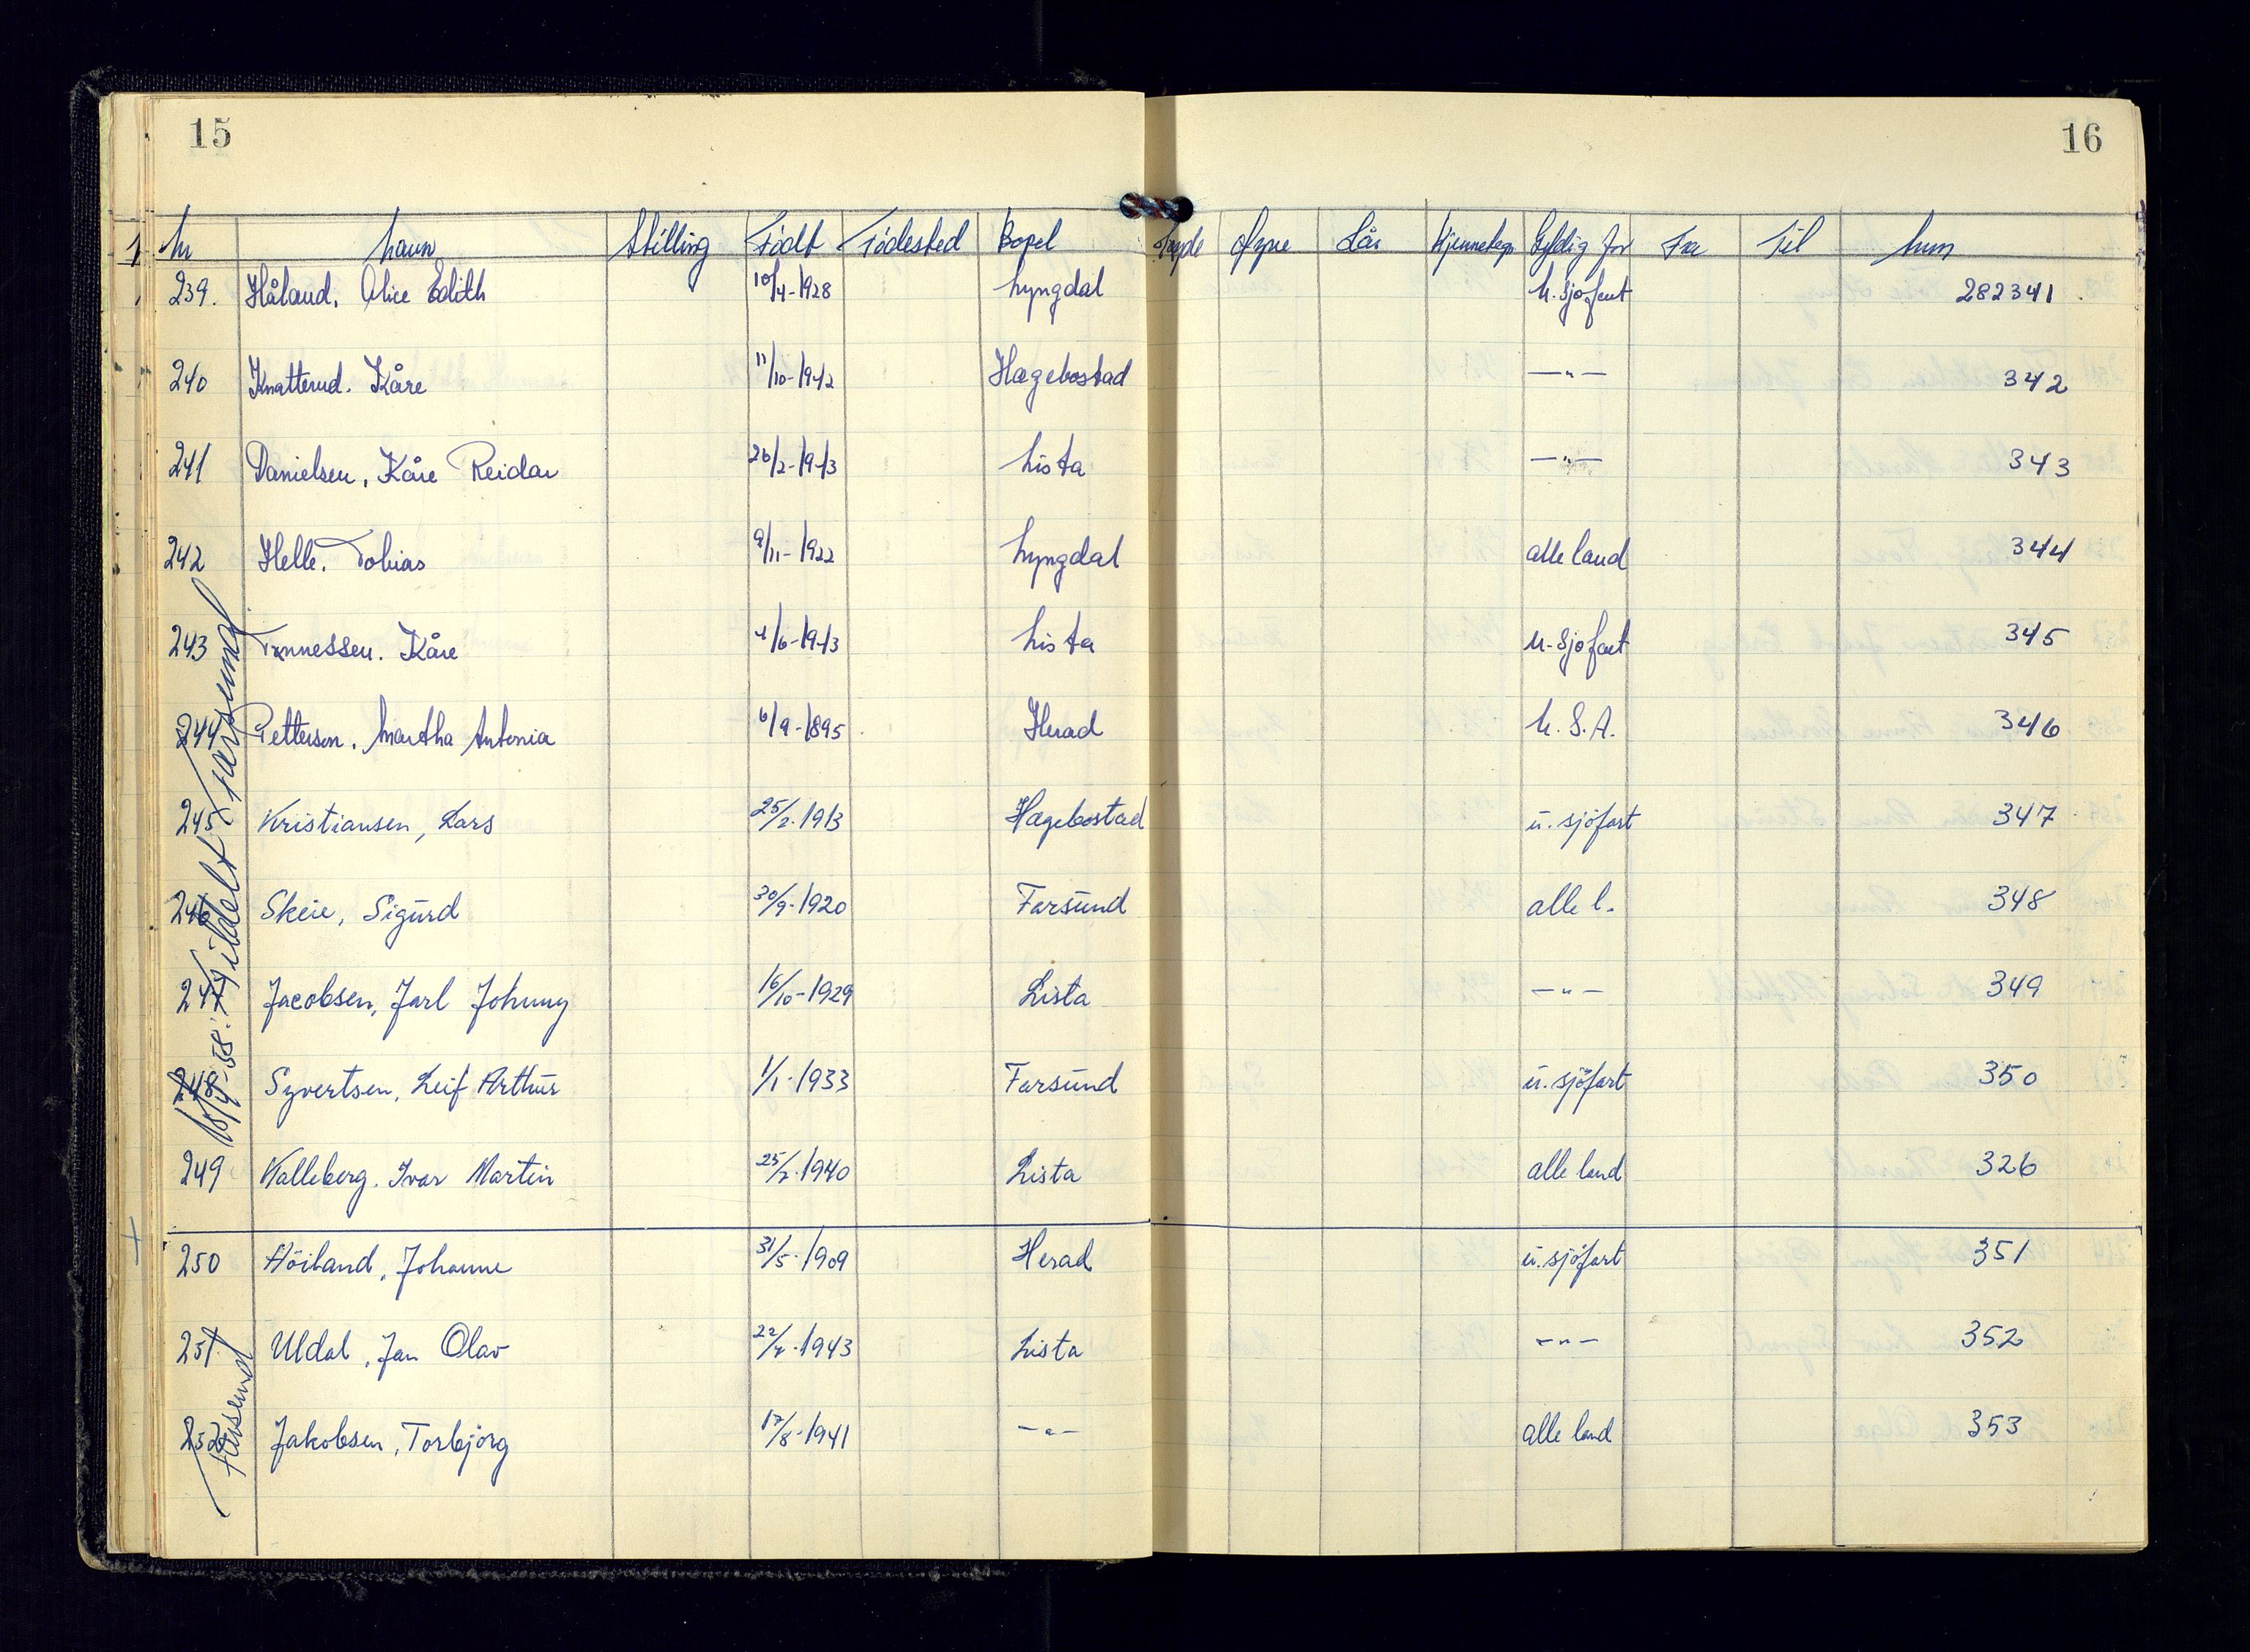 15
16
Nr Navn Stilling Født Fødested Bopel Høyde Øyne Hår Kjennetegn Gyldig for Fra Til Num
239. Håland, Alice Edith 10/4-1928 Lyngdal U. Sjøfart 282341
240 Knatterud. Kåre 11/10-1942 Hægebostad —"— 342
241 Danielsen, Kåre Reidar 26/2-1943 Lista —"— 343
242 Helle. Tobias 9/11-1922 Lyngdal alle land 344
243 Tønnessen. Kåre 4/6-1943 Lista U-Sjøfart 345
244 Pettersen. Martha Antonia 6/9-1895 Herad U.S.A. 346
245 Kristiansen, Lars 25/2.1913 Hægebostad u. sjöfart 347
246 Skeie, Sigurd 30/9-1920 Farsund alle l. 348
247 Jacobsen, Jarl Johnny 16/10-1929 Lista —"— 349
248 Syvertsen, Leif Arthur 1/1.1933 Farsund u. sjöfart 350
249 Kalleberg. Ivar Martin 25/2.1940 Lista alle land 326
250 Höiland, Johanne 31/5.1909 Herad u. sjöfart 351
251 Uldal, Jan Olav 22/4.1943 Lista —"— 352
252 Jakobsen, Torbjörg 17/8-1941 —"— alle land 353
58. Tildelt Farsund
Farsund